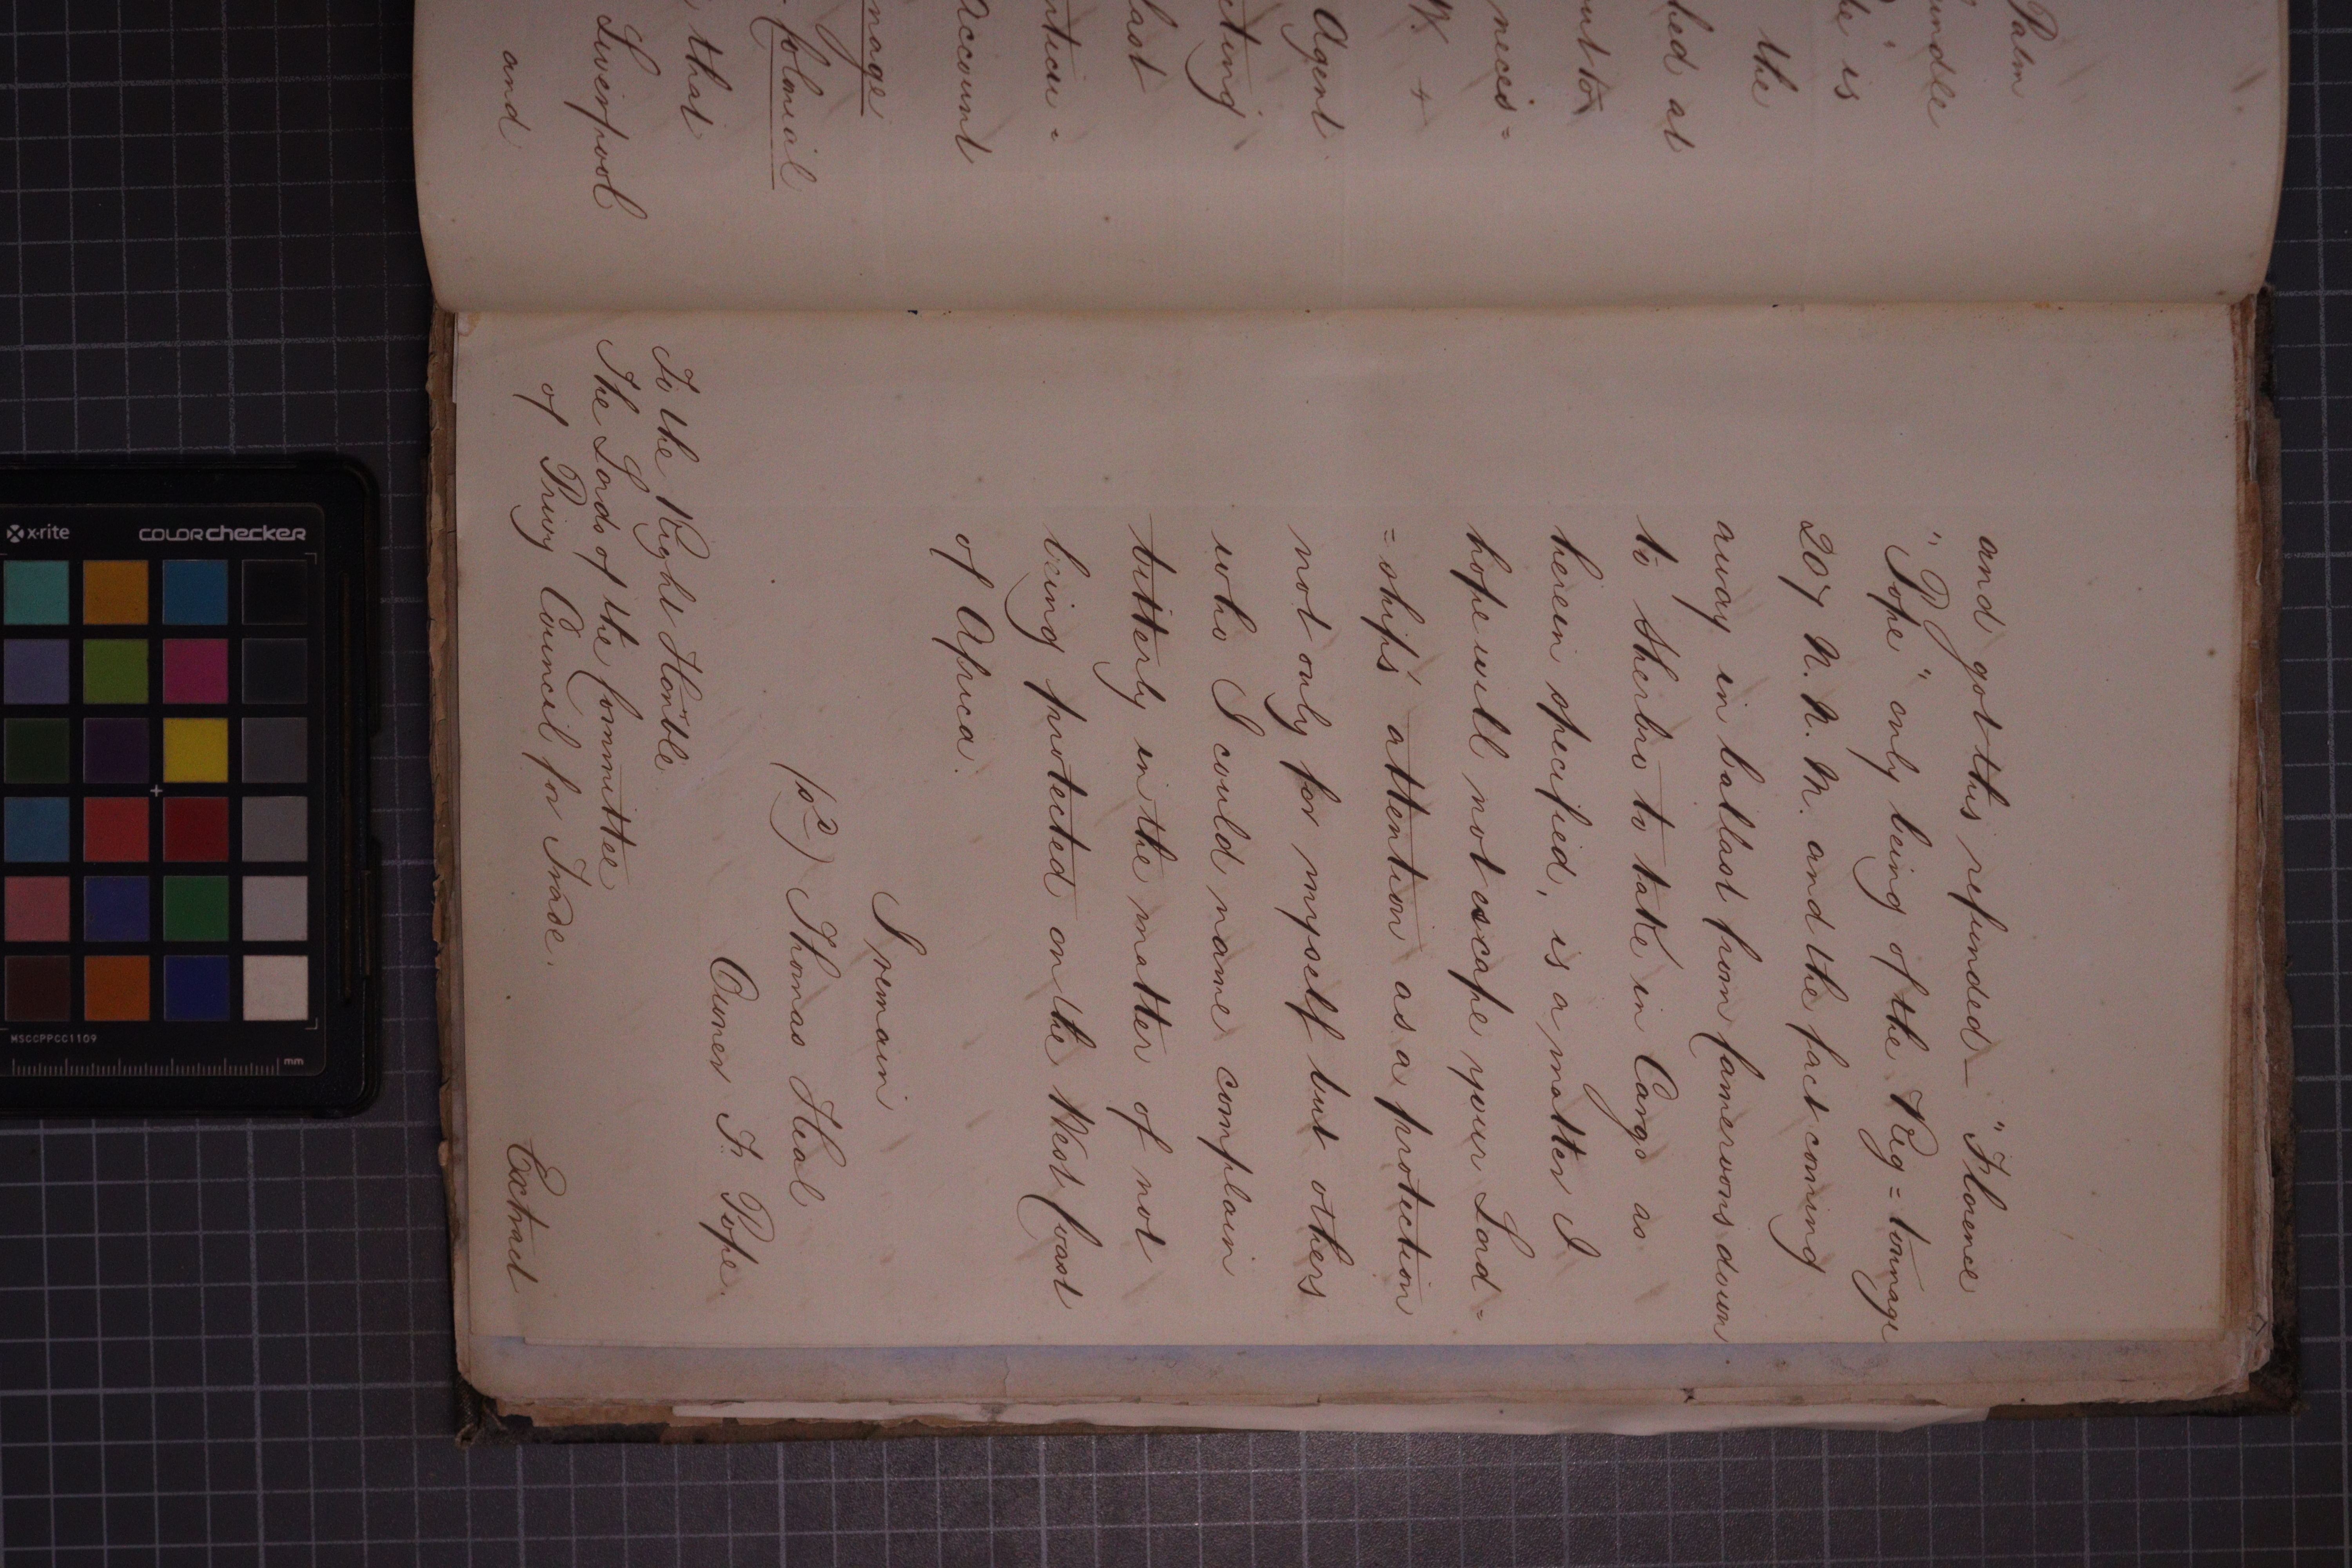 Palm
undle
de" is
the
hed at
unt to
neces=
W. +
Agent
cting
last
nticu=
Account
nage
Colonial
that
Liverpool
and
and got this refunded — "Florence
"Pope" only being of the Reg=tonnage
207 N. N. M. and the fact coming
away in ballast from Cameroons down
to Sherbro to take in Cargo as
herein specified, is a matter I
hope will not escape your Lord=
=ships' attention as a protection
not only for myself but others
who I could name complain
bitterly in the matter of not
being protected on the West Coast
of Africa.
I remain
(sd) Thomas Heal
Owner F. Pope.
To the Right Honble
The Lords of the Committee
of Privy Council for Trade.
Extract
x-rite
colorchecker
MSCCPPCC1109
mm